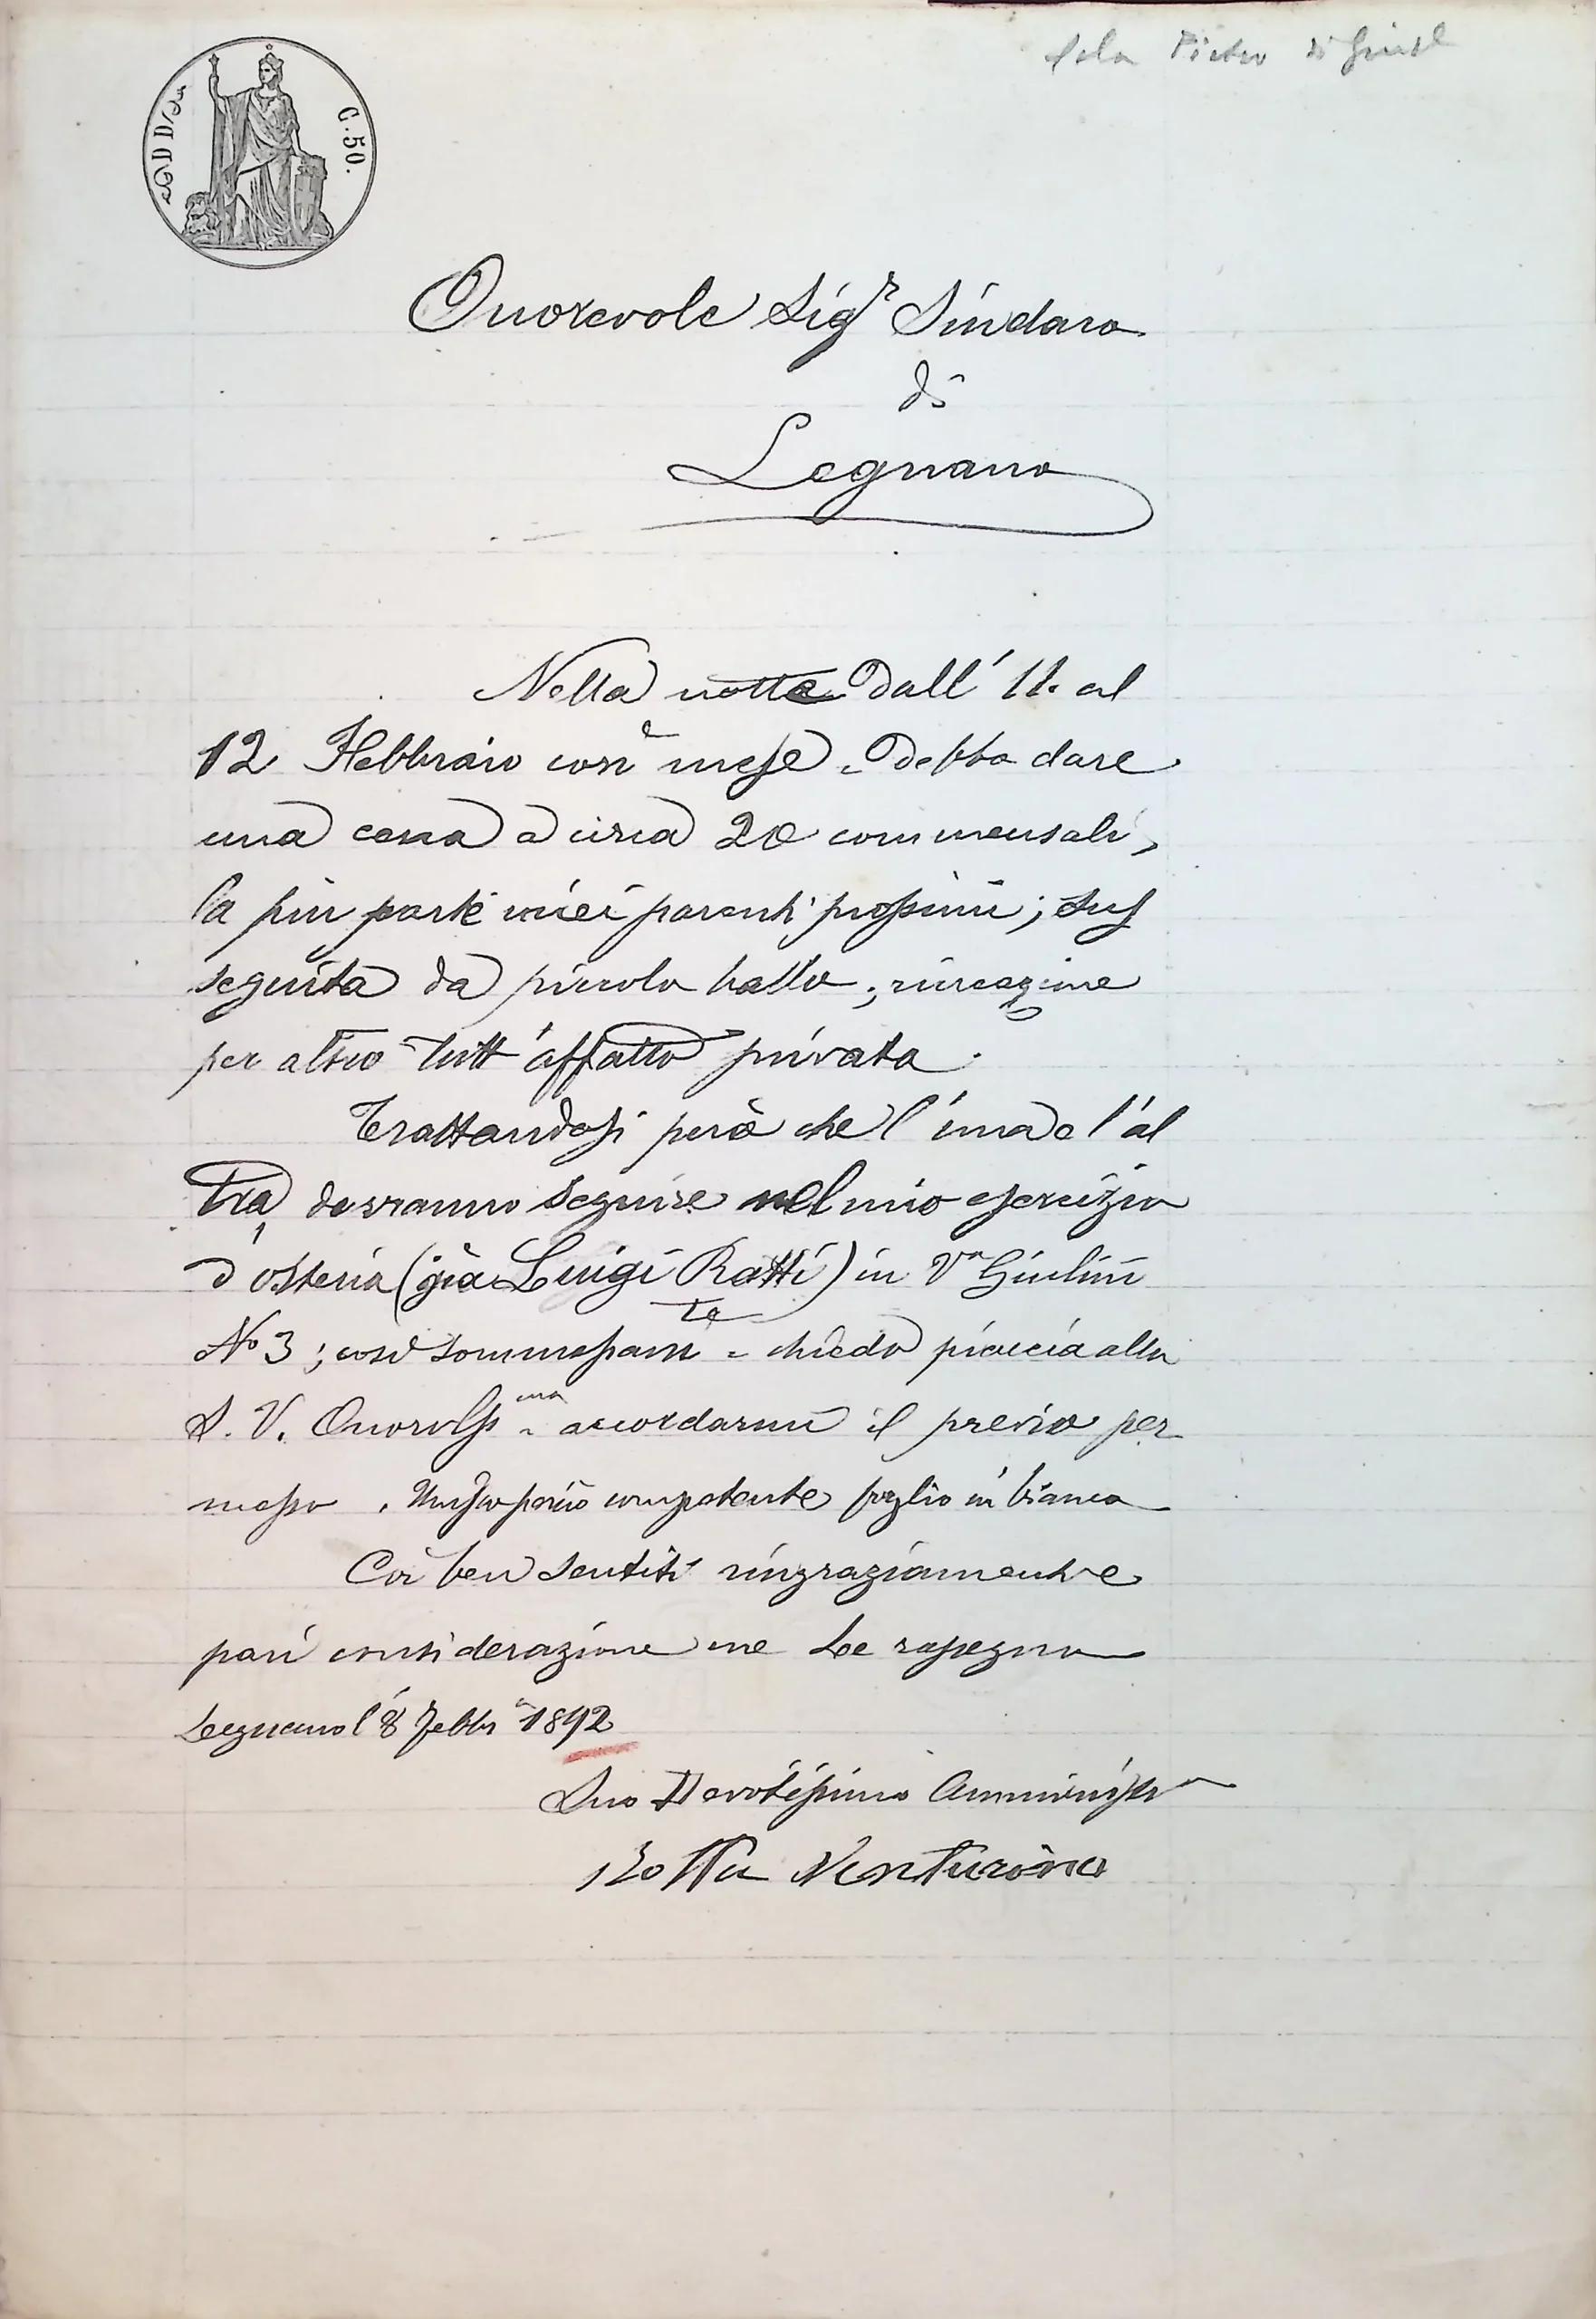 Pietro di Gius
C. 50.
Onorevole Sigr Sindaco
di
Legnano
Nella notte dall' 11. al
12 Febbraio corre mese = debbo dare
una cena a circa 20 commensali,
la più parte miei parenti prossimi; sus
seguita da piccolo ballo; ricreazione
per altro tutt'affatto privata.
Trattandosi però che l'una e l'al
tra, dovranno seguire nel mio esercizio
d'osteria (già Luigi Ratti) in Va Giulini
No 3; così sommessamte = chiedo piaccia alla
S. V. Onorevlssma = accordarmi il previo per
messo. Unisco perciò competente foglio in bianco
Coi ben sentiti ringraziamenti e
pari considerazione me Le rassegno
Legnano l'8 Febbro 1892
Suo Devotissimo Amministo
Rotta Venturino